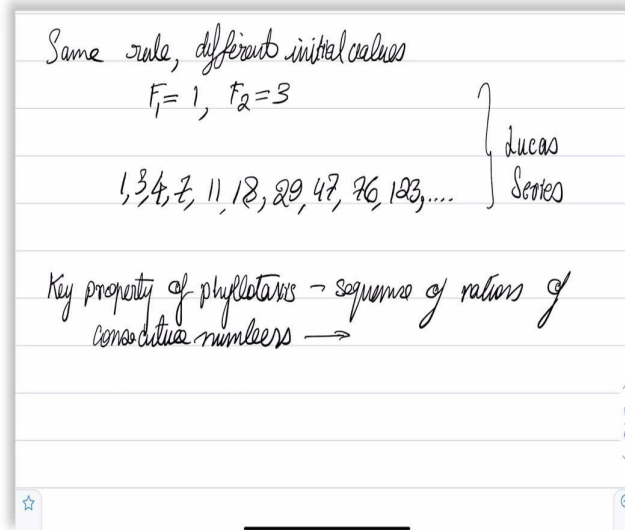 Same rule, different initial values
F₁ = 1, F₂ = 3
1, 3, 4, 7, 11, 18, 29, 47, 76, 123, ....
} Lucas
Series
Key property of phyllotaxis - sequence of ratios of
consecutive numbers →